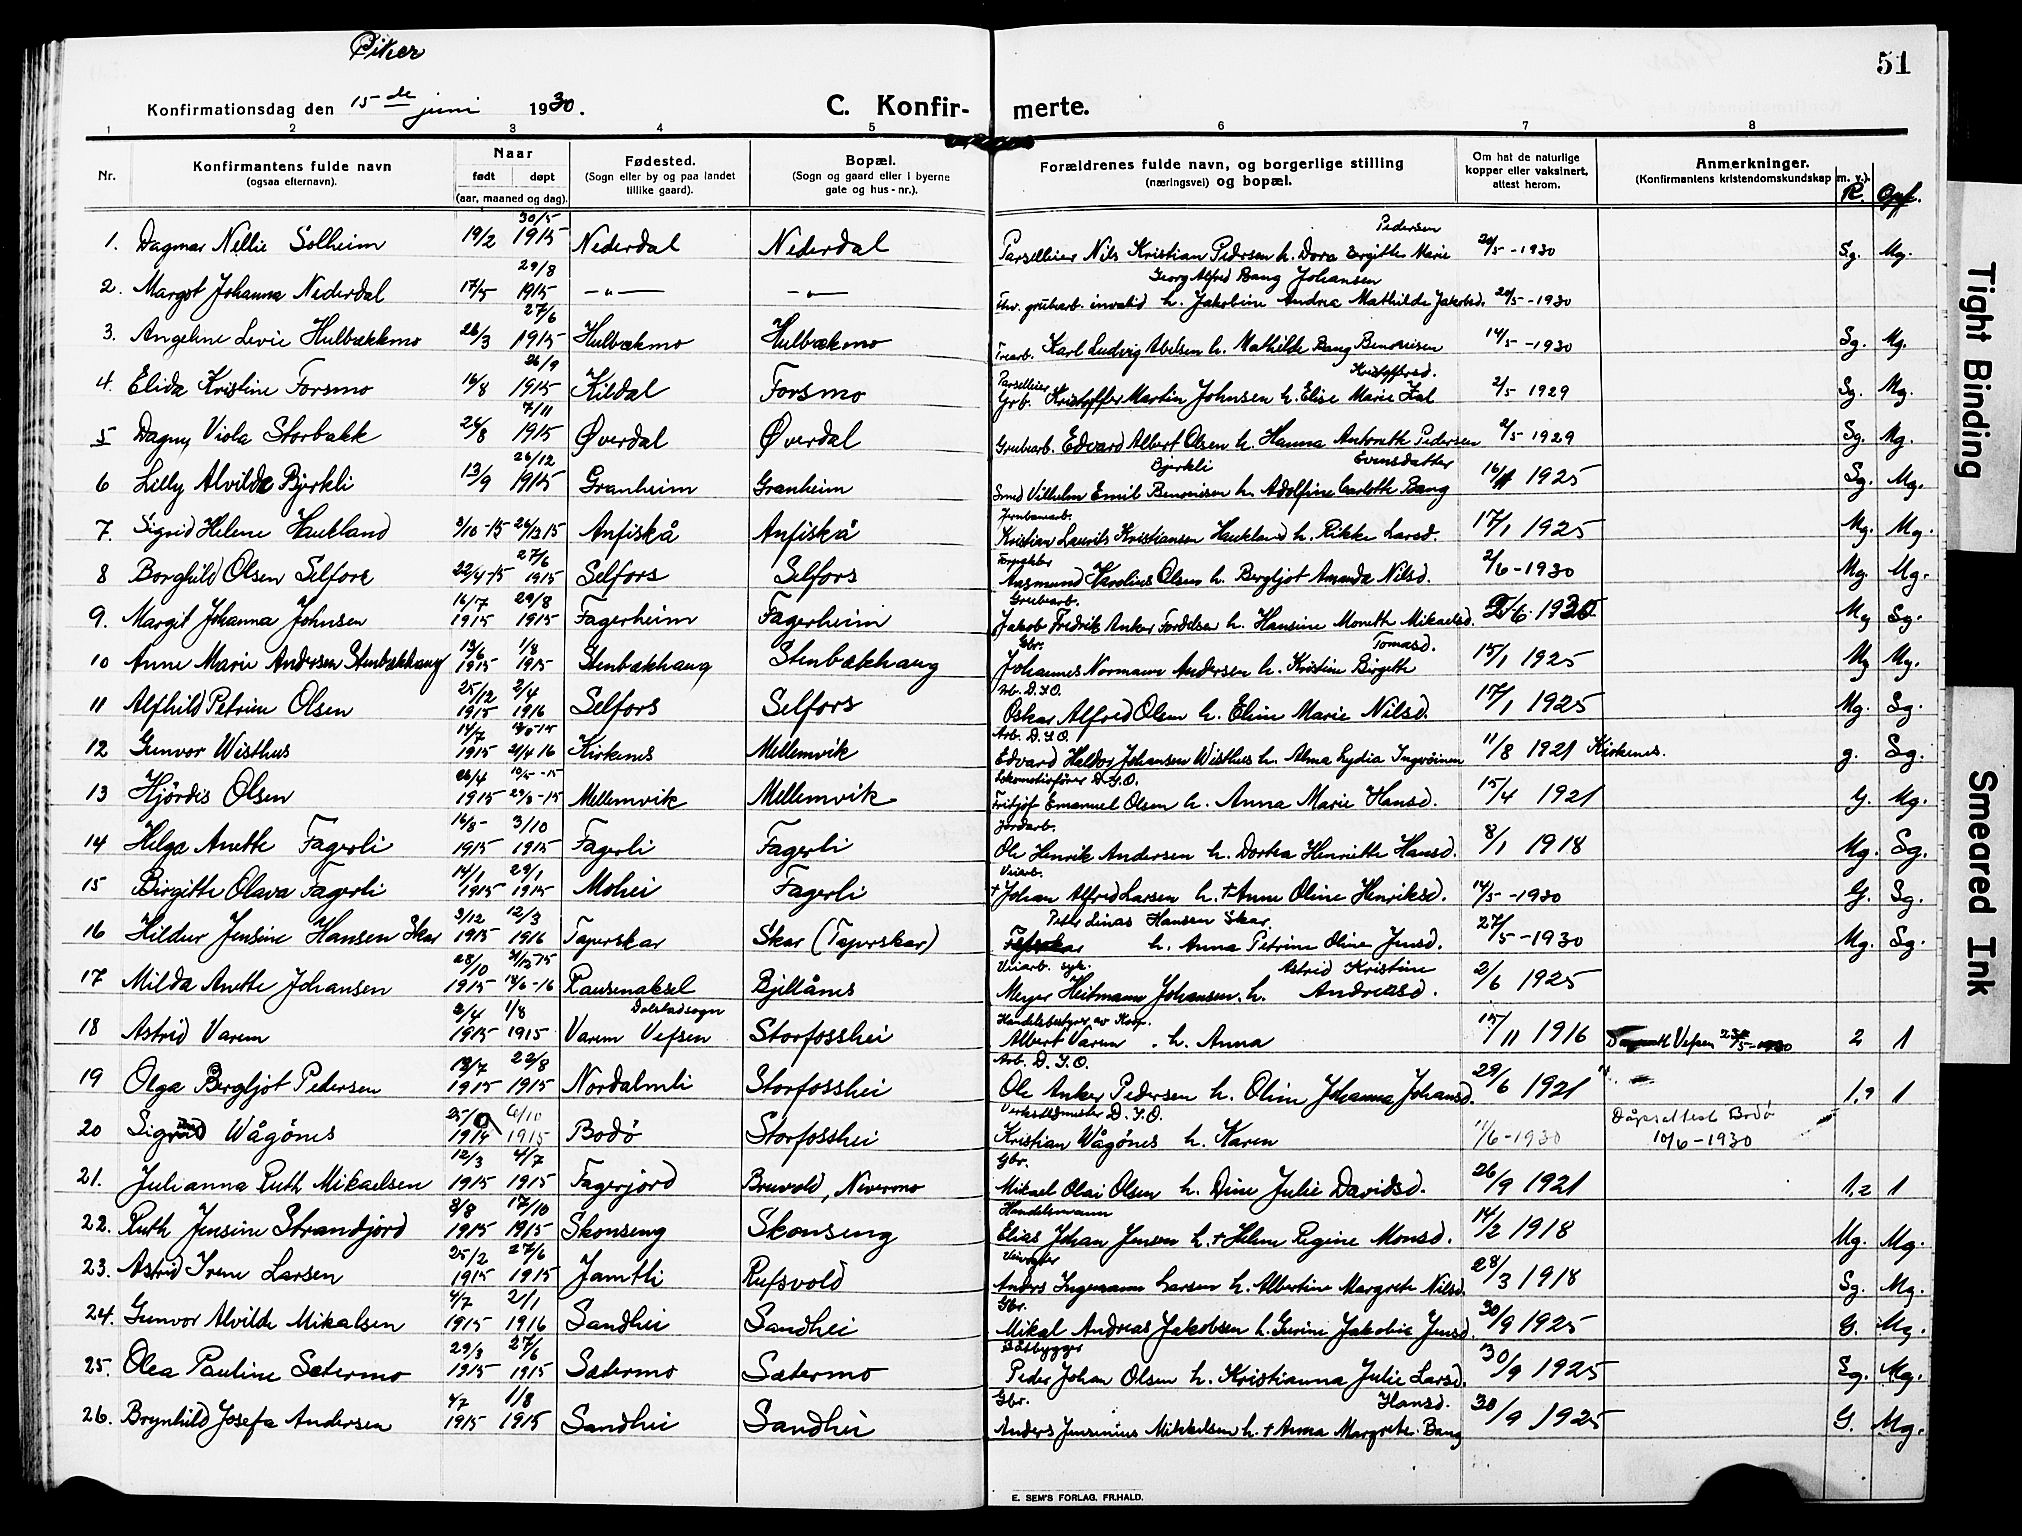 Piker
51
Konfirmationsdag den 15de juni 1930.
C. Konfirmerte.
1 2 3 4 5 6 7 8
Nr. Konfirmantens fulde navn (ogsaa efternavn). Naar født døpt (aar, maaned og dag). Fødested. (Sogn eller by og paa landet tillike gaard). Bopæl. (Sogn og gaard eller i byerne gate og hus-nr.). Forældrenes fulde navn, og borgerlige stilling (næringsvei) og bopæl. Om hat de naturlige kopper eller vaksinert, attest herom. Anmerkninger. (Konfirmantens kristendomskundskap m. v.). K. Opf.
1. Dagmar Nellie Solheim 19/2 30/5 1915 Nederdal Nederdal Parselleier Nils Kristian Pedersen h. Dora Bergitte Marie Pedersen 20/5-1930 Sg. Mg.
2. Margot Johanna Nederdal 17/5 29/8 1915 —"— —"— Georg Alfred Bang Johansen
Fhv. grubarb. invalid h. Jakobine Andrea Mathilde Jakobsd. 20/5-1930
3. Angeline Levie Hulbækkmo 26/3 27/6 1915 Hulbækmo Hulbækmo Karl Ludvig Abelsen h. Mathilde Bang Benonisen 14/5-1930 Sg. Mg.
4. Elida Kristine Forsmo 16/8 26/9 1915 Kildal Forsmo Parselleier Grb. Kristoffer Martin Johnsen h. Elise Marie Kristoffersd. 2/5 1929 Sg. Mg.
5 Dagny Viola Storbakk 26/8 7/11 1915 Øverdal Øverdal Grubearb. Edvard Albert Olsen h. Hanna Antonette Pedersen 2/5 1929 Sg. Mg.
6 Lilly Alvilde Bjerkli 13/9 26/12 1915 Granheim Granheim Smed Vilhelm Emil Benonisen Bjerkli h. Adolfine Carlotte Bang Evensdatter 1925 Sg. Mg.
7. Sigrid Helene Haukland 3/10-15 26/12 15 Anfiskå Anfiskå Jernbanearb.
Kristian Laurits Kristiansen Haukland h. Rikke Larsd. 17/1 1925 Mg. Mg.
8 Borghild Olsen Selfors 22/4-15 27/6 1915 Selfors Selfors Forpakter
Aasmund Karolius Olsen h. Bergljot Amanda Nilsd. 2/6-1930 Mg. Mg.
9. Margit Johanna Johnsen 16/7 1915 29/8 1915 Fagerheim Fagerheim Grubearb.
Jakob Fredrik Anker h. Hansine Moneth Mikaelsd. 1930 Mg Sg.
10 Anne Marie Andersen Stenbækhaug 13/6 1915 1/8 1915 Stenbækhaug Stenbækhaug Gbr.
Johannes Normann Andersen h. Kristine Birgethe Tomasd. 15/1 1925 Mg Mg.
11 Alfhild Petrine Olsen 25/12 1915 2/4 1916 Selfors Selfors Arb. D.I.O.
Oskar Alfred Olsen h. Eline Marie Nilsd. 17/1 1925 Mg. Sg.
12 Gunvor Wisthus 14/7 1915 2/4 16 Kirkenes Mellemvik Arb. D.I.O.
Edvard Haldor Johansen Wisthus h. Alma Lydia 11/8 1921 Kirkenes. g. Sg.
13 Hjördis Olsen 26/4 1915 Mellemvik Mellemvik Lokomotivfører D.I.O.
Fritjof Emanuel Olsen h. Anna Marie Hansd. 15/4 1921 G. Mg.
14 Helga Anette Fagerli 16/8- 1915 3/10 1915 Fagerli Fagerli Jordarb.
Ole Henrik Andersen h. Dortea Henriette Hansd. 8/1 1918 Mg. Sg.
15 Birgitte Olava Fagerli 14/1 1915 29/1 1915 Mohei Fagerli Veiarb.
†Johan Alfred Larsen h. †Anne Oline Henriksd. 14/5-1930 G. Sg.
16 Hildur Jensine Hansen Skar 3/12 1915 12/3 1916 Tverskar Skar (Tverskar) Peter Linas Hansen Skar
h. Anna Petrine Oline Jensd. 27/5-1930 Mg. Sg.
17 Milda Anette Johansen 28/10 1915 Bjellånes Veiarb. syk.
Meyer Heitmann Johansen. h. Astrid Kristine Andreasd. 2/6 1925
18 Astrid Varem 2/4 1915 1/8 1915 Dolstadsogn Varem Vefsen Storfosshei Handelsbestyrer av Koop.
Albert Varem . h. Anna 15/11 1916 Vefsen 23/5-1930 2 1
19 Olga Bergljot Pedersen 13/7 1915 22/8 1915 Nordalmli Storfosshei Arb. D.I.O.
Ole Anker Pedersen h. Oline Johanna Johansd. 29/6 1921 1.2 1
20 Wågönes 1914 6/10 1915 Bodö Storfosshei Verkstedmester D.I.O.
Kristian Wågönes h. Karen 11/6-1930 Dåpsattest Bodö 10/6-1930
21. Julianna Ruth Mikaelsen 12/3 1915 4/7 1915 Fagerjord Bruvold, Nevermo Gbr.
Mikael Olai Olsen h. Dine Julie Davidsd. 26/9 1921 1.2 1
22. Ruth Jensine Strandjord 8/8 1915 17/10 1915 Skonseng Skonseng Handelsmann
Elias Johan Jensen h. † Helene Regine Monsd. 14/2 1918 Mg. Mg.
23. Astrid Irene Larsen 25/2 1915 27/6 1915 Jamtli Rufsvold Veivokter
Anders Ingemann Larsen h. Albertine Margrete Nilsd. 28/3 1918 Sg. Mg.
24. Gunvor Alvilde Mikalsen 4/7 1915 2/1 1916 Sandhei Sandhei Gbr.
Mikal Andreas Jakobsen h. Gurine Jakobie Jensd. 30/9 1925 G. Mg.
25. Olea Pauline Sætermo 29/3 1915 27/6 1915 Sætermo Sætermo Båtbygger
Peder Johan Olsen h. Kristianna Julie Larsd. 30/9 1925 Sg. Mg.
26. Brynhild Josefa Andersen 4/7 1915 1/8 1915 Sandhei Sandhei Gbr.
Anders Jensenius Mikkelsen h. † Anna Margrete Bang Hansd. 30/9 1925 G. Mg.
E. SEM'S FORLAG. FR.HALD.
Tight Binding
Smeared Ink